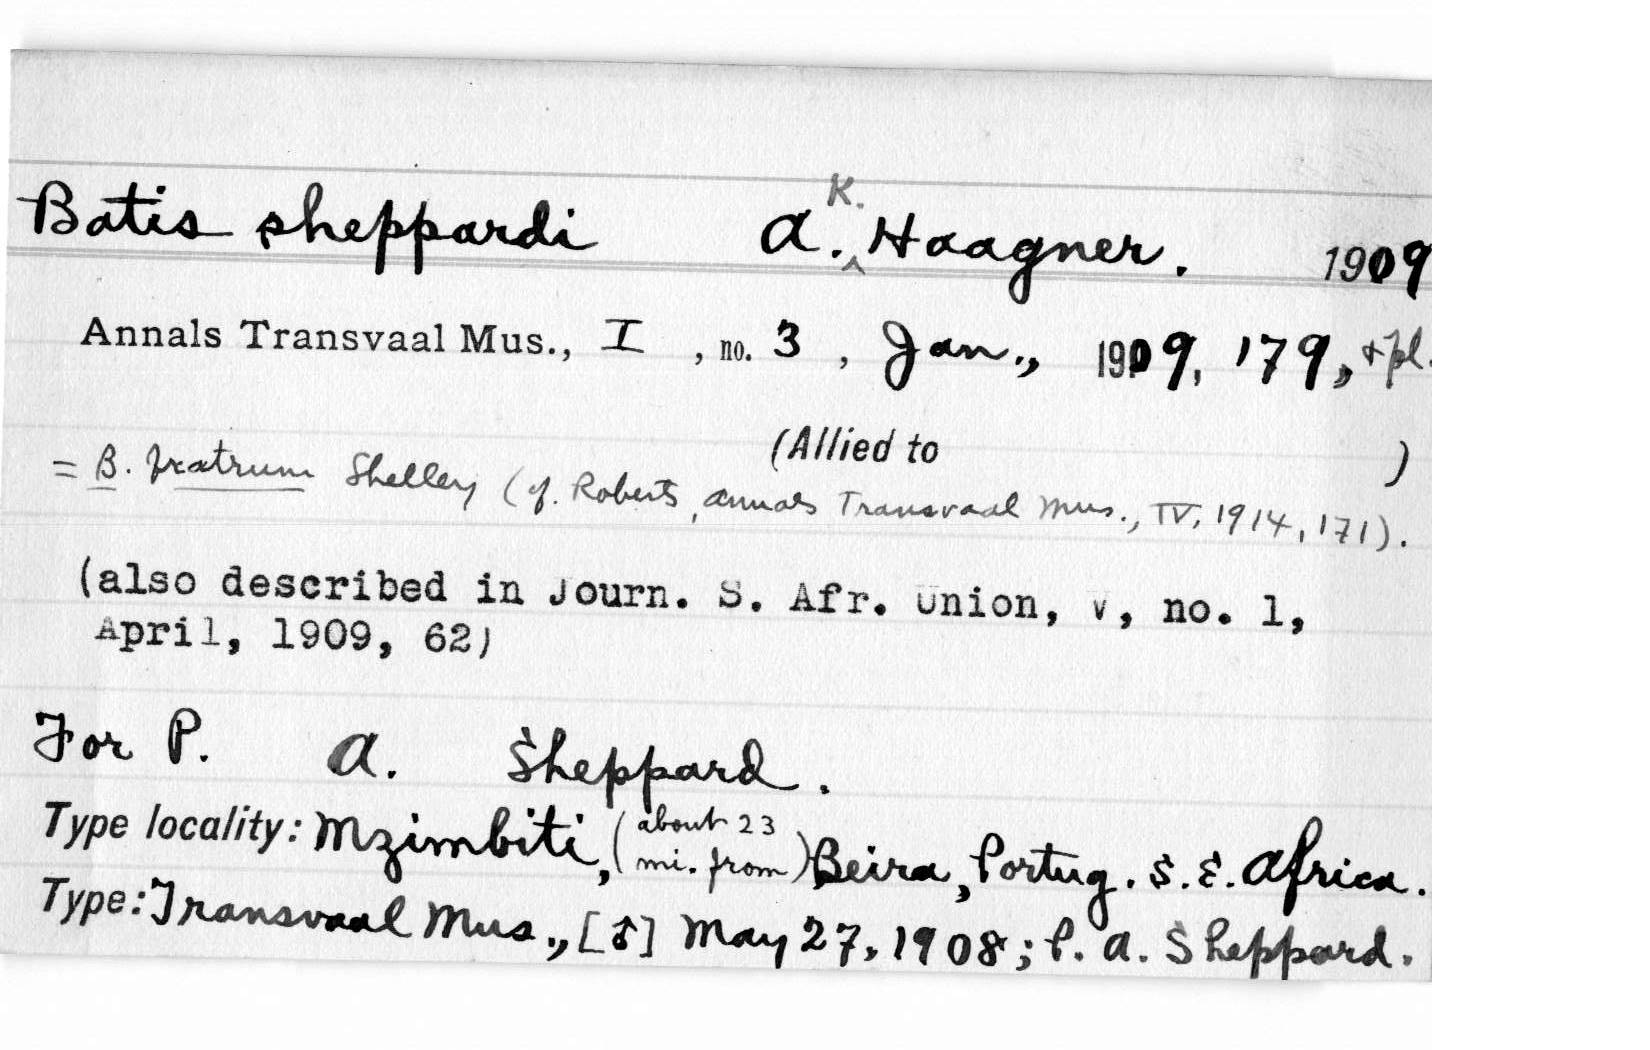 Batis sheppardi A. K. Haagner. 1909
Annals Transvaal Mus., I , no. 3 , Jan., 1909, 179, + pl.
(Allied to )
= B. fratrum Shelley (cf. Roberts, Annals Transvaal Mus., IV, 1914, 171).
(also described in Journ. S. Afr. Union, V, no. 1,
April, 1909, 62)
For P. A. Sheppard.
Type locality: Mzimbiti, (about 23 mi. from) Beira, Portug. S. E. Africa.
Type: Transvaal Mus., [♂] May 27, 1908; P. A. Sheppard.